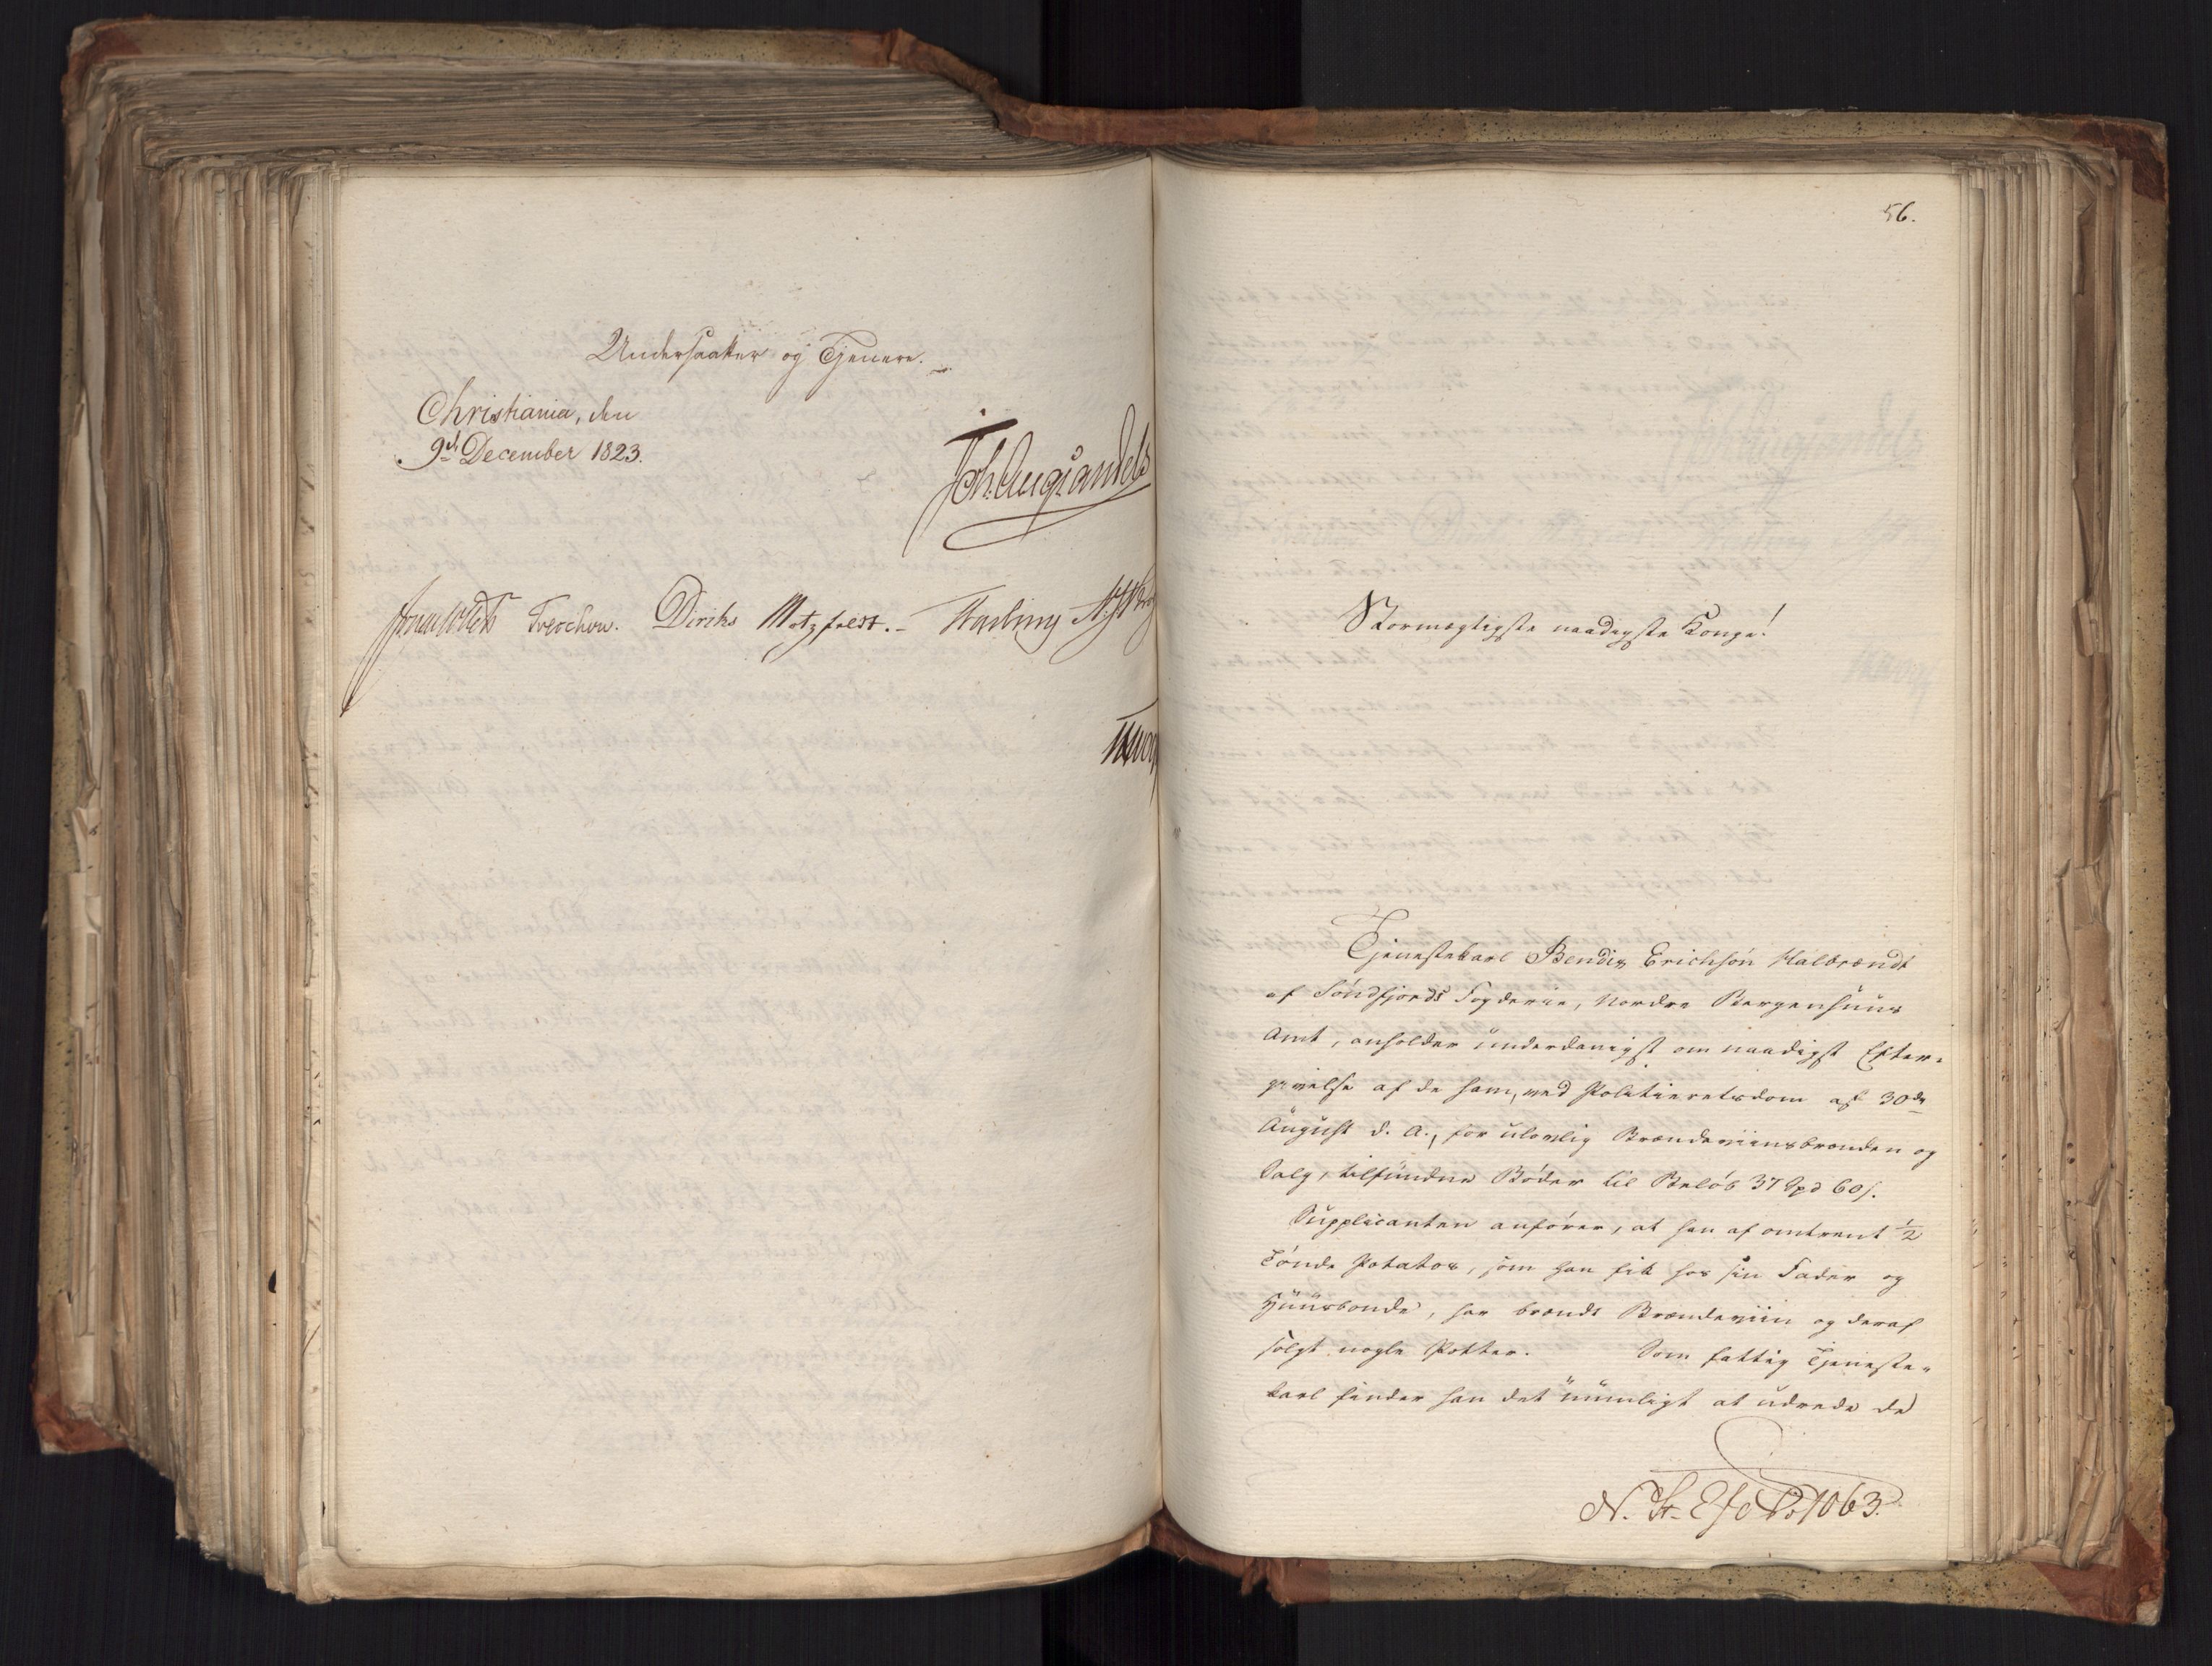 Undersaatter og Tjenere.
Christiania, den
9de December 1823.
Joh. Aug. Sandels
Jonas Collett Treschow. Diriks Motzfeldt. Fasting
56.
Stormægtigste naadigste Konge!
Tjenestekarl Bendix Erichsøn Halbrændt
af Søndfjords Fogderie, Nordre Bergenhuus
Amt, anholder underdanigst om naadigst Efter-
givelse af de ham, ved Politieretsdom af 30de
August d. A., for ulovlig Brændeviinsbrænden og
Salg, tilfundne Bøder til Beløb 37 Spd 60 s.
Supplicanten anfører, at han af omtrent 1/2
Tønde Potatos, som han fik hos sin Fader og
Huusbonde, har brændt Brændeviin og deraf
solgt nogle Potter. Som fattig Tjeneste-
karl finder han det umuligt at udrede de
N. St. Exp. No 1063.